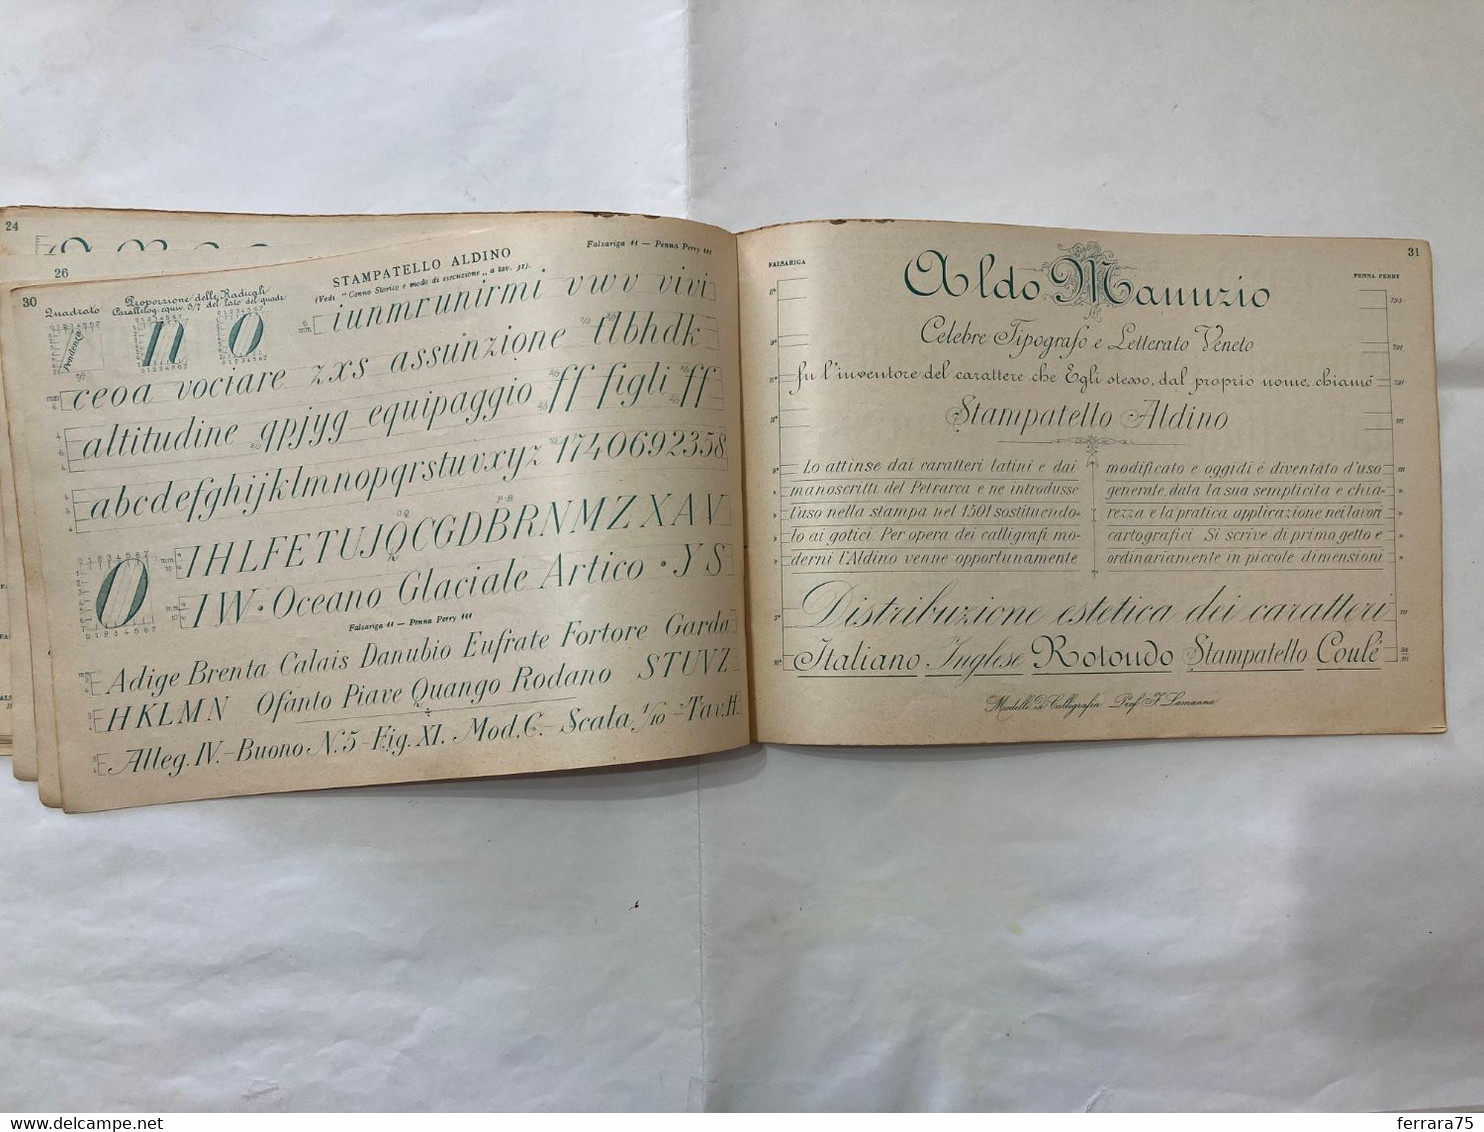 24
26
30
STAMPATELLO ALDINO
Falsariga 44 — Penna Perry 444
(Vedi "Cenno Storico e modo di esecuzione„ a tav. 31).
Quadrato
Proporzione delle Radicali
Parallelog. equiv. 5/7 del lato del quadr.
Pendenza
n o
iunmrunirmi vwv vivi
ceoa vociare zxs assunzione tlbhdk
altitudine qpjyg equipaggio ff figli ff
abcdefghijklmnopqrstuvxyz 1740692358
IHLFETUJQCGDBRNMZXAV
O
IW · Oceano Glaciale Artico · YS
Falsariga 44 — Penna Perry 444
Adige Brenta Calais Danubio Eufrate Fortore Garda
HKLMN Ofanto Piave Quango Rodano STUVZ
Alleg. IV.–Buono N. 5–Fig. XI. Mod. C.–Scala 1/10 –Tav. H.
31
FALSARIGA
PENNA PERRY
Aldo Manuzio
Celebre Tipografo e Letterato Veneto
fu l'inventore del carattere che Egli stesso, dal proprio nome, chiamò
Stampatello Aldino
Lo attinse dai caratteri latini e dai
manoscritti del Petrarca e ne introdusse
l'uso nella stampa nel 1501 sostituendo-
lo ai gotici. Per opera dei calligrafi mo-
derni l'Aldino venne opportunamente
modificato e oggidì è diventato d'uso
generale, data la sua semplicità e chia-
rezza e la pratica applicazione nei lavori
cartografici. Si scrive di primo getto e
ordinariamente in piccole dimensioni
Distribuzione estetica dei caratteri
Italiano Inglese Rotondo Stampatello Coulé
Modelli di Calligrafia Prof. F. Lamanna
ferrara75